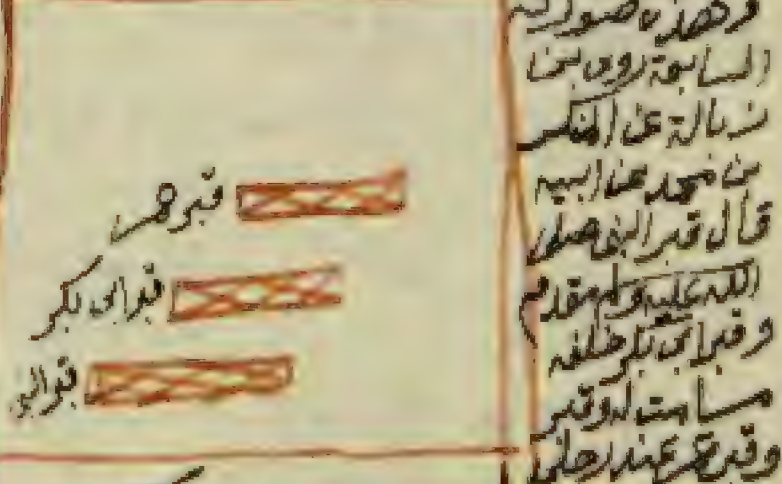 وهذه صورته
السابعة روى بحنا
زبالة عن المنكدر
بن محمد عن ابيه
قال قبر النبي صلى
الله عليه وسلم مقدم
وقبر ابي بكر خلفه
وقبر
وقبر عمر عند رجلي
قبر عمر
قبر ابي بكر
قبر النبي